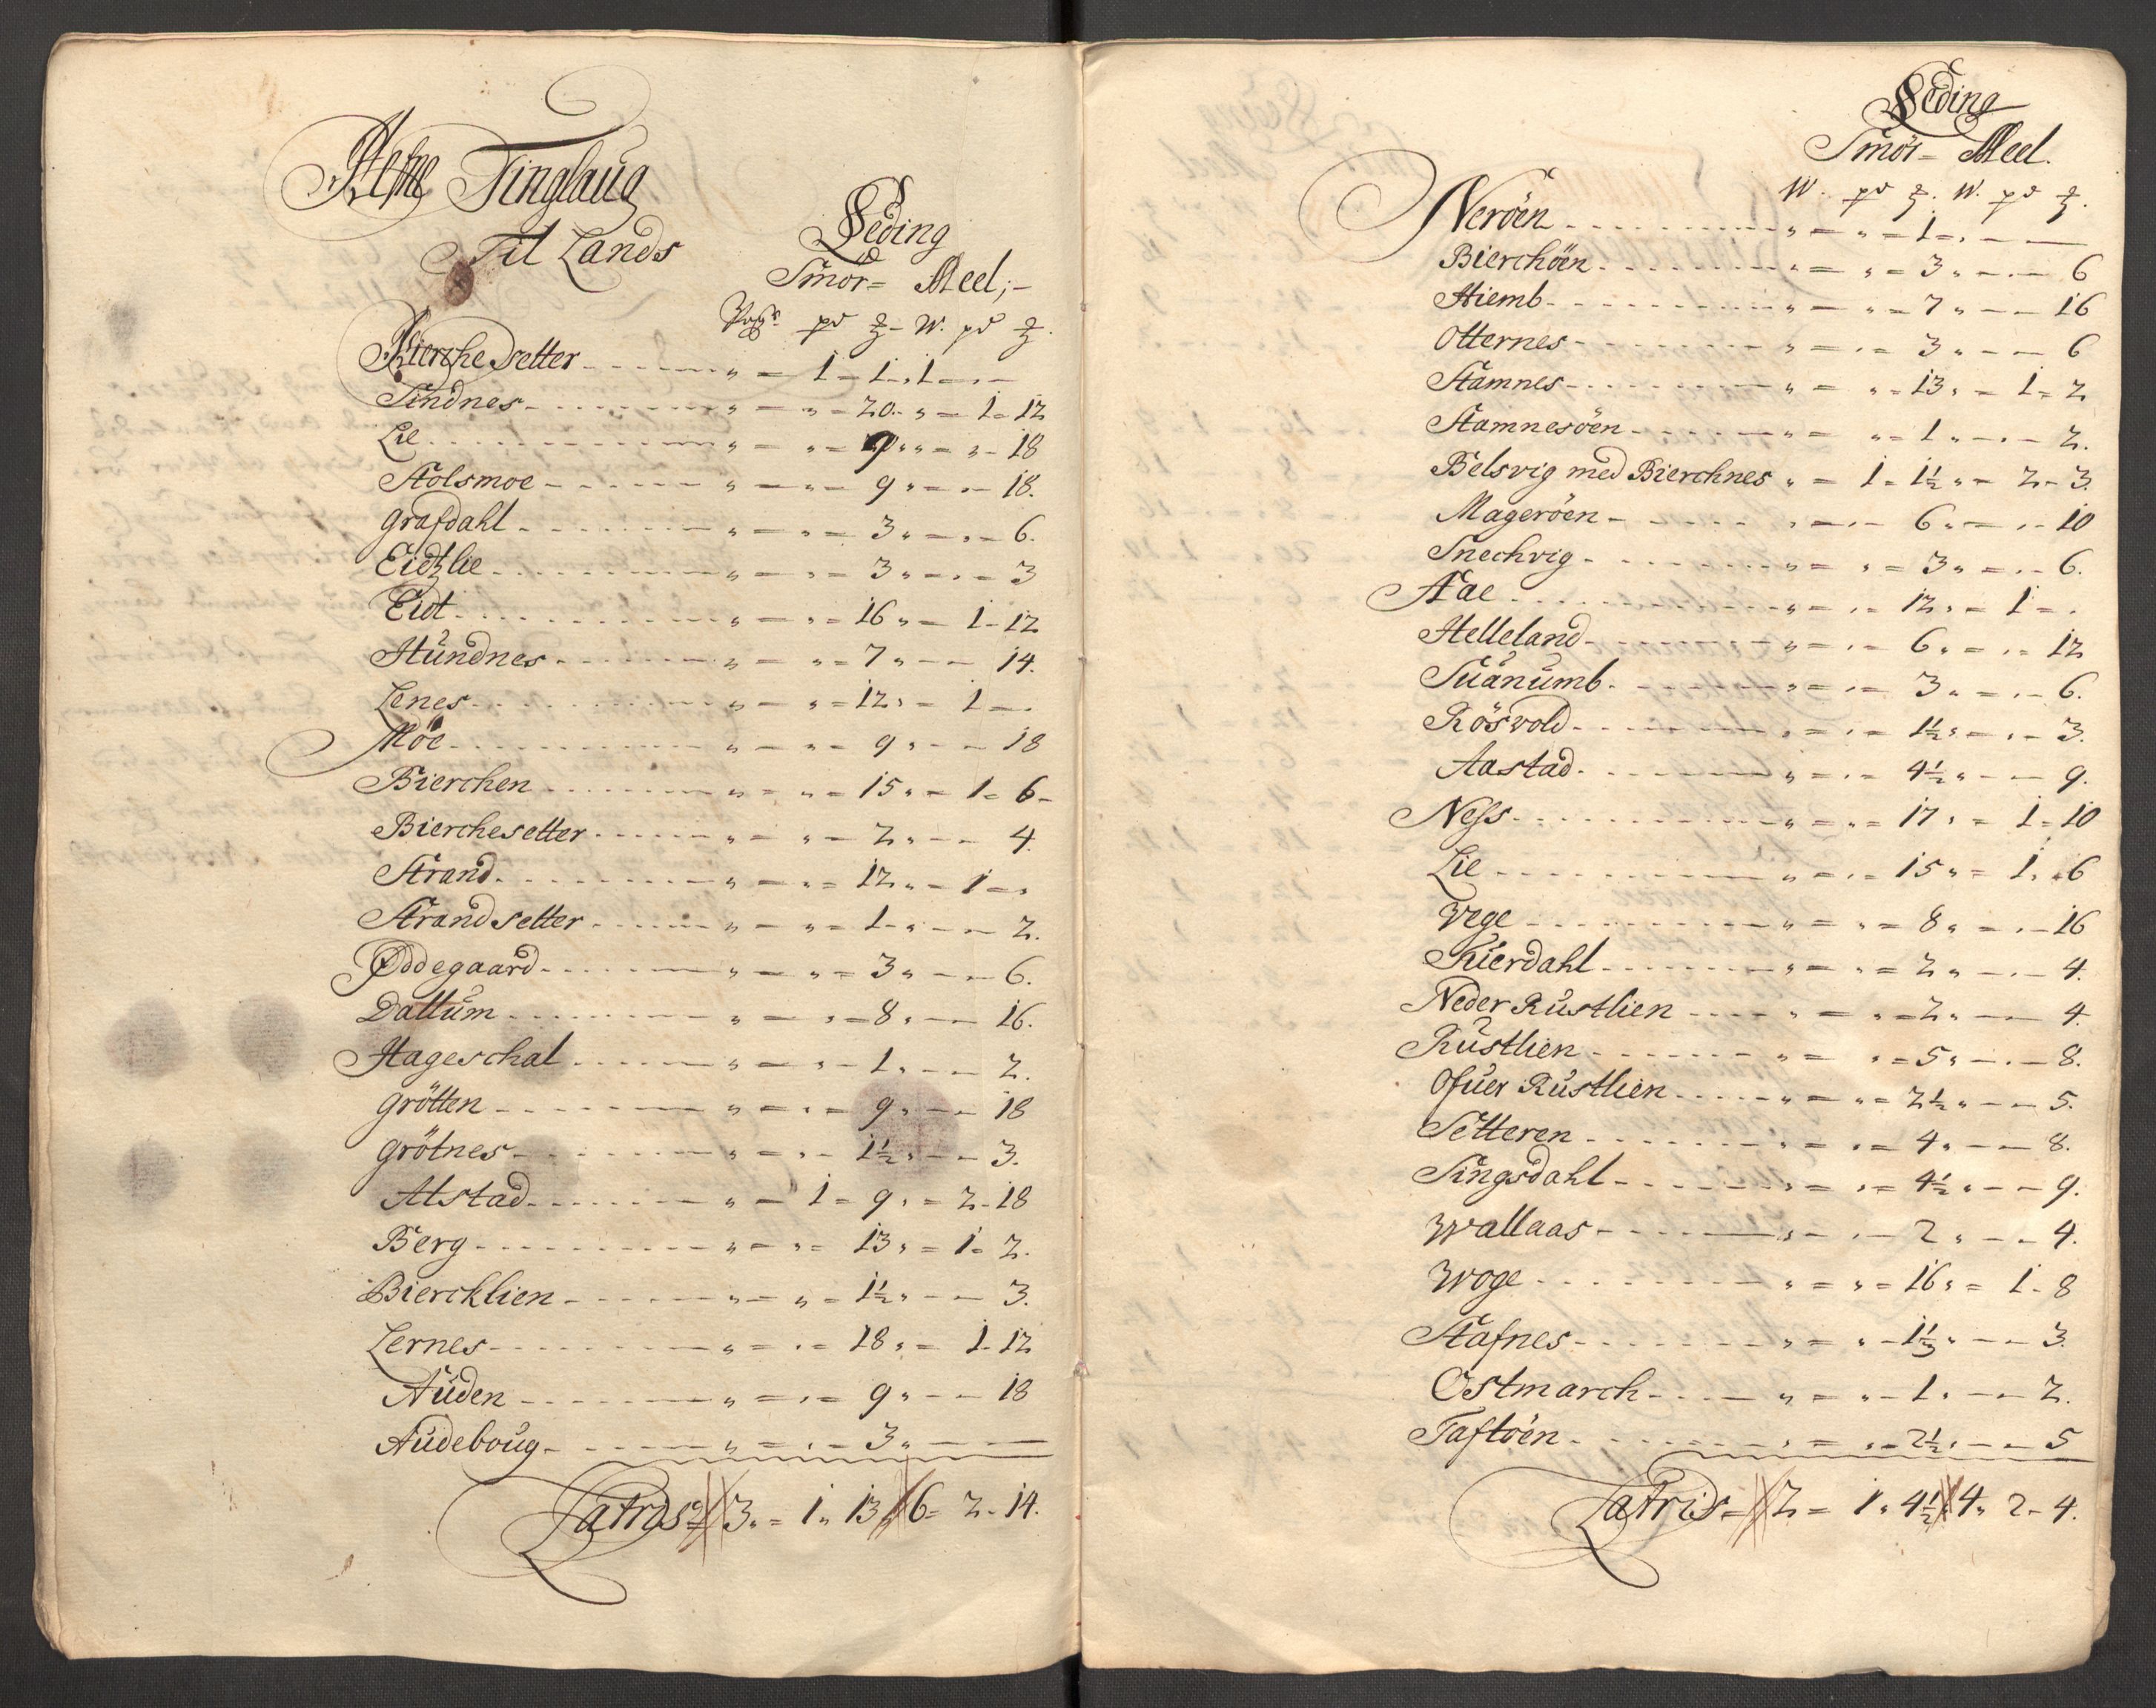 Hefne Tinglaug
Til Lands
Leding
Smör= Meel;-
Woger pd ℔ - W. pd ℔.
Bierchesetter - - - „ = 1 - 1 - „ 1 - „ -
Sindnes - - - „ = „ = 20 - „ = 1 - 12
Lie - - - „ = „ = 9 „ „ = „ - 18
Stolsmoe - - - „ = „ - 9 „ = „ - 18.
Grafdahl - - - „ = „ = 3 „ = „ = 6.
Eidtzlie - - - „ = „ = 3 „ = „ = 3
Eidt - - - „ = „ = 16 „ = 1 - 12
Hündnes - - - „ = „ = 7 „ - - 14.
Lenes - - - „ = „ = 12 „ = 1 = „
Möe - - - „ = „ - 9 „ - - 18
Bierchen - - - „ = „ = 15 „ = 1 = 6 -
Bierchesetter - - - „ = „ = 2 „ - - 4.
Strand - - - „ = „ = 12 „ = 1 = „
Strandsetter - - - „ = „ = 1 - „ - - 2.
Øddegaard - - - „ = „ = 3 „ - - 6.
Dallüm - - - „ = „ = 8 „ - - 16.
Hageschal - - - „ = „ - 1 „ - - 2.
Grötten - - - „ = „ = 9 „ - - 18
Grötnes - - - „ = „ - 1½ „ - - 3.
Alstad - - - „ = 1 = 9 „ = 2 - 18
Berg - - - „ = „ = 13 „ = 1 = 2.
Biercklien - - - „ = „ = 1½ „ - - 3.
Lernes - - - „ = „ = 18 „ = 1 - 12
Aüden - - - „ = „ = 9 „ - - 18
Aüdeboug - - - „ = „ - 3 „ - -
Latris 3 „ = 1 „ 13 „ 6 = 2 - 14.
Leding
Smör= Meel.
W. pd ℔. W. pd ℔.
Neröen - - - „ = „ = 1 = „ - -
Bierchöen - - - „ = „ = 3 „ - „ - 6
Hiemb - - - „ = „ = 7 „ - - 16
Otternes - - - „ = „ = 3 „ - - 6
Stamnes - - - „ = „ = 13 „ = 1 = 2
Stamnesöen - - - „ = „ = 1 „ - „ - 2.
Belsvig med Bierchnes „ = 1 = 1½ „ = 2 - 3.
Mageröen - - - „ = „ - 6 „ = „ - 10
Snechvig - - - „ = „ = 3 „ = „ - 6.
Aae - - - „ = „ = 12 „ = 1 = „
Helleland - - - „ = „ = 6 „ = „ = 12
Süanümb - - - „ = „ = 3 „ = „ - 6.
Rösvold - - - „ = „ = 1½ „ = „ - 3.
Aastad - - - „ = „ = 4½ „ - - 9.
Ness - - - „ = „ = 17 „ = 1 = 10
Lie - - - „ = „ = 15 „ = 1 „ 6
Wege - - - „ = „ = 8 „ = „ - 16
Skierdahl - - - „ = „ = 2 „ - „ - 4.
Neder Rüstlien - - - „ = „ = 2 „ - - 4.
Rüstlien - - - „ = „ = 5 „ - „ - 8.
Ofuer Rüstlien - - - „ = „ = 2½ „ - - 5.
Setteren - - - „ = „ = 4 „ - - 8.
Singsdahl - - - „ = „ = 4½ „ - - 9.
Wallaas - - - „ = „ - 2 „ - - 4.
Woge - - - „ = „ = 16 „ = 1 - 8
Stafnes - - - „ = „ - 1½ „ - - 3.
Ostmarch - - - „ = „ - 1 „ - - 2.
Taftöen - - - „ = „ = 2½ „ - - 5
Latris = 2 = 1 „ 4½ 4 „ 2 - 4.